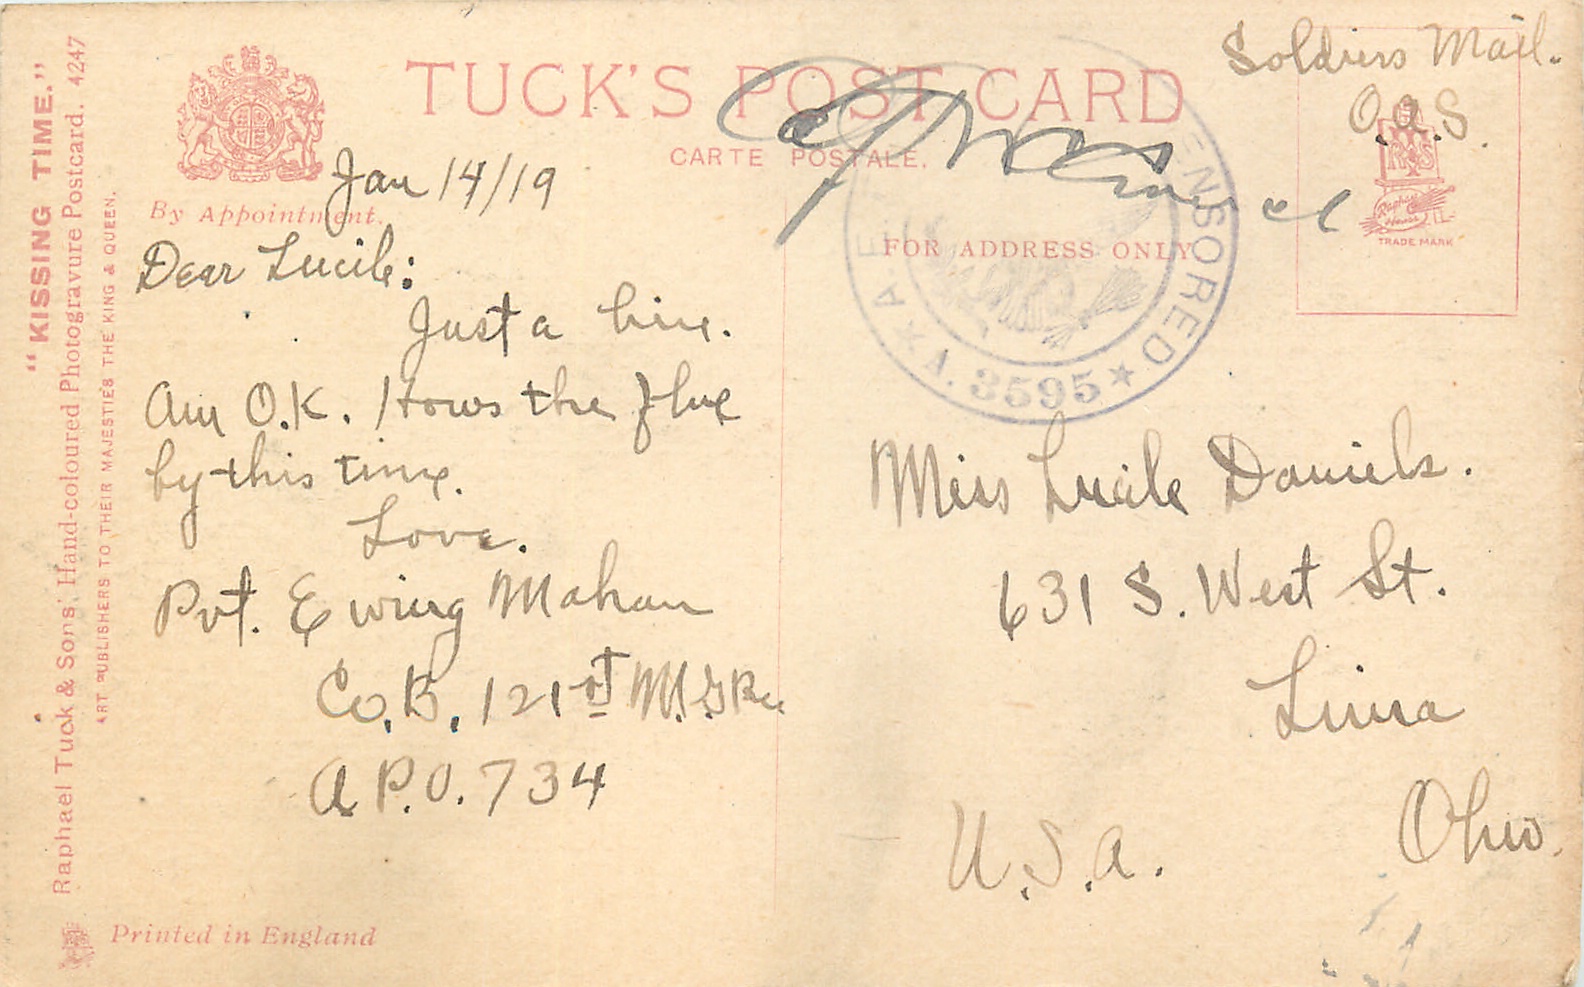 "KISSING TIME."
Raphael Tuck & Sons' Hand-coloured Photogravure Postcard. 4247
ART PUBLISHERS TO THEIR MAJESTIES THE KING & QUEEN.
TUCK'S POST CARD
CARTE POSTALE.
By Appointment.
FOR ADDRESS ONLY
Soldiers Mail.
O.A.S.
TRADE MARK
A.E.F.
CENSORED
A. 3595
Jan 14/19
Dear Lucile:
Just a line.
Am O.K. Hows the flue
by this time.
Love.
Pvt. Ewing Mahan
Co. B. 121st M.G.Bn.
A P.O. 734
Miss Lucile Daniels.
631 S. West St.
Lima
Ohio.
U.S.A.
Printed in England